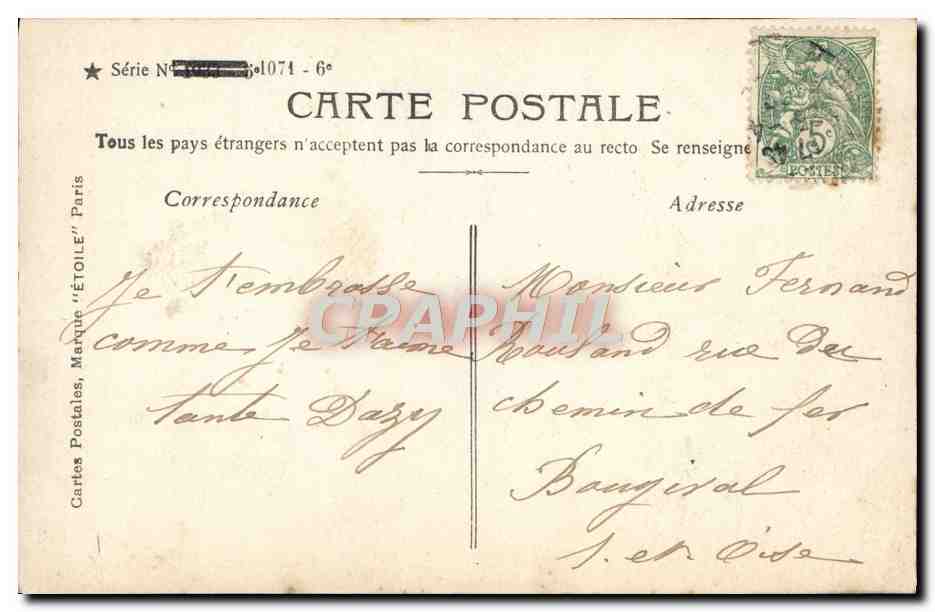 ★ Série N° 1071 - 6e
CARTE POSTALE
Tous les pays étrangers n'acceptent pas la correspondance au recto Se renseigne
Correspondance
Je t'embrasse
comme je t'aime
tante Dazy
Adresse
Monsieur Fernand
Rouland rue du
chemin de fer
Bougival
S. et Oise
5c
POSTES
Cartes Postales, Marque "ÉTOILE" Paris
CPAPHIL